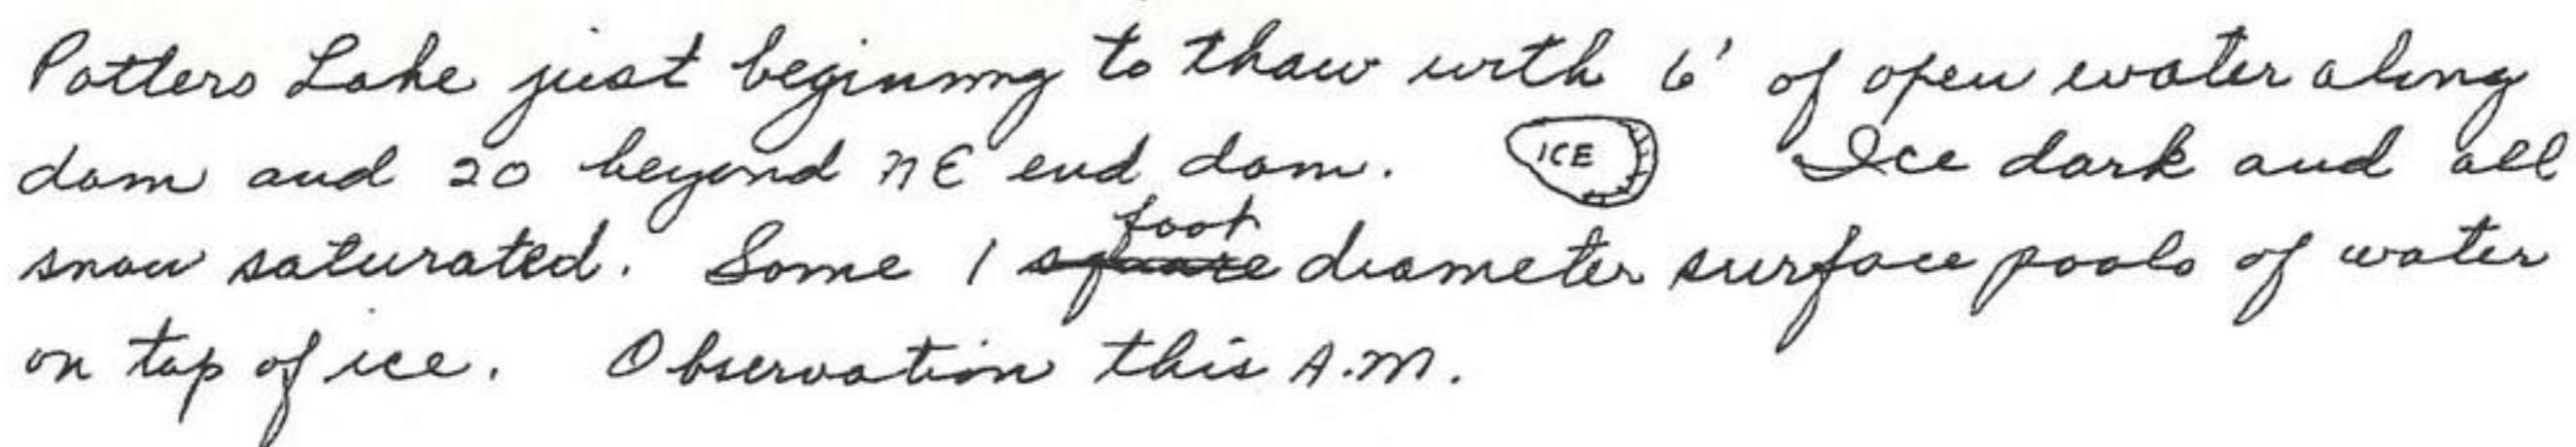 Potters Lake just beginning to thaw with 6' of open water along
dam and 20 beyond NE end dam. ICE Ice dark and all
snow saturated. Some 1 foot diameter surface pools of water
on top of ice. Observation this A.M.